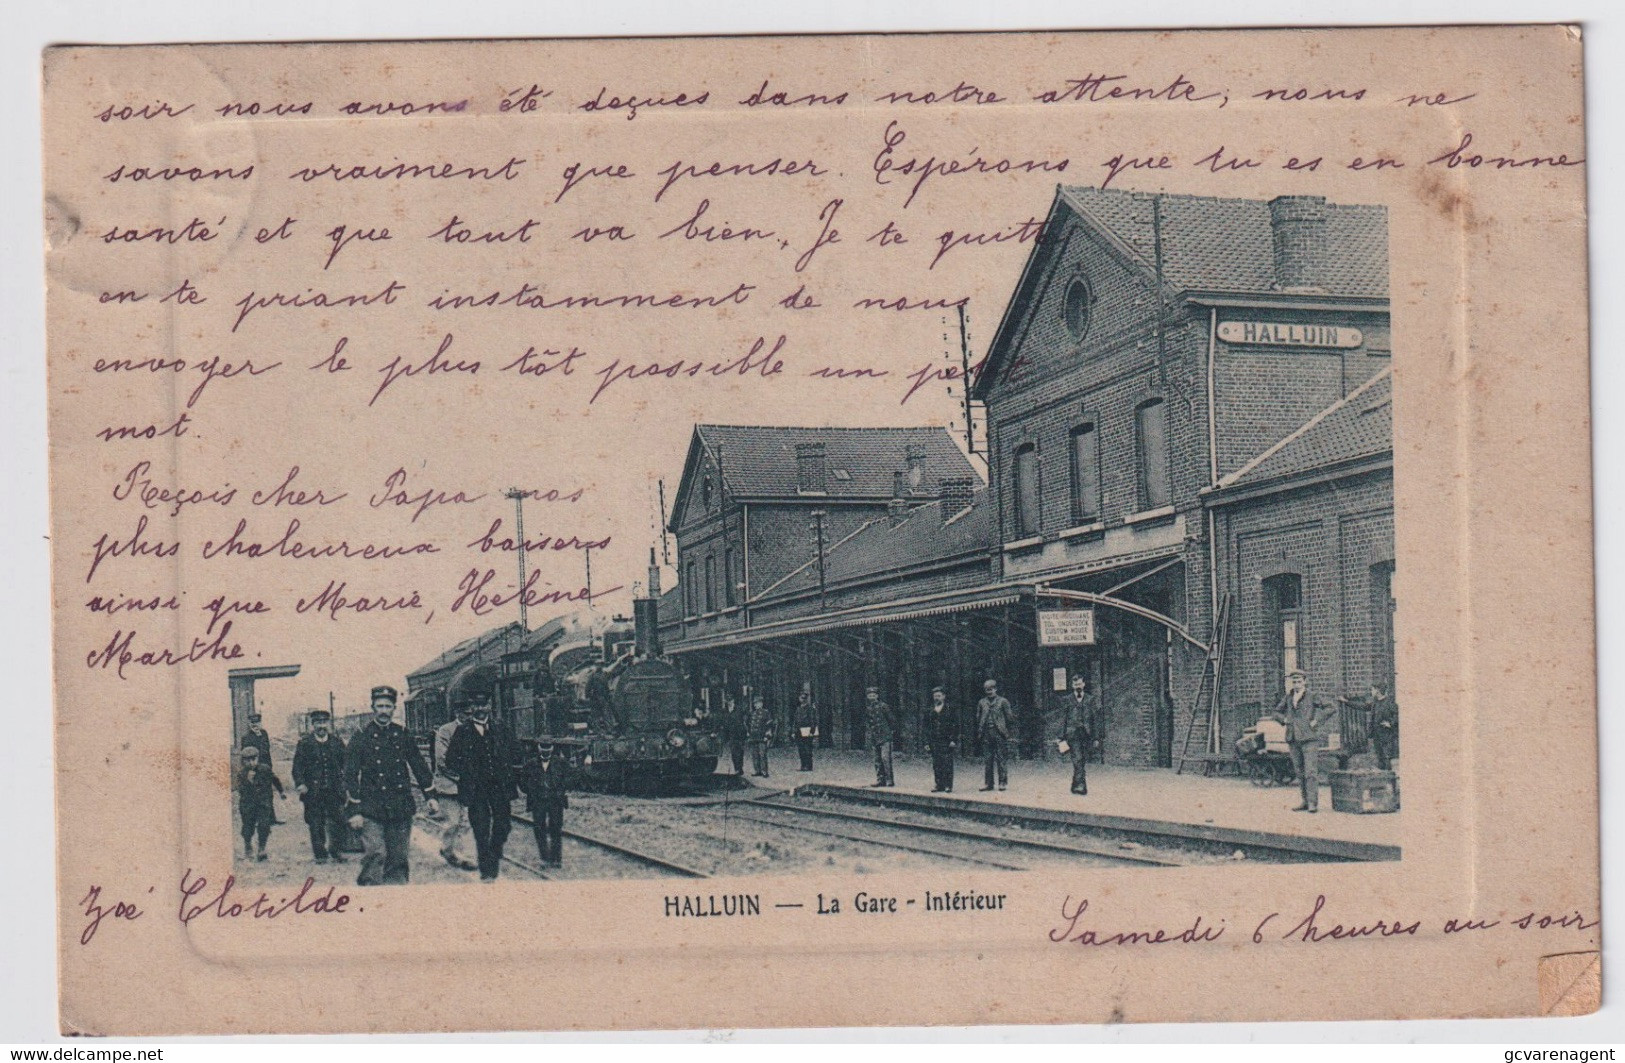 soir nous avons été deçues dans notre attente, nous ne
savons vraiment que penser. Espérons que tu es en bonne
santé et que tout va bien. Je te quitte
en te priant instamment de nous
envoyer le plus tôt possible un petit
mot.
Reçois cher Papa nos
plus chaleureux baisers
ainsi que Marie, Hélène
Marthe.
Zoé Clotilde.
HALLUIN
HALLUIN — La Gare - Intérieur
Samedi 6 heures au soir.
delcampe.net
gcvarenagent